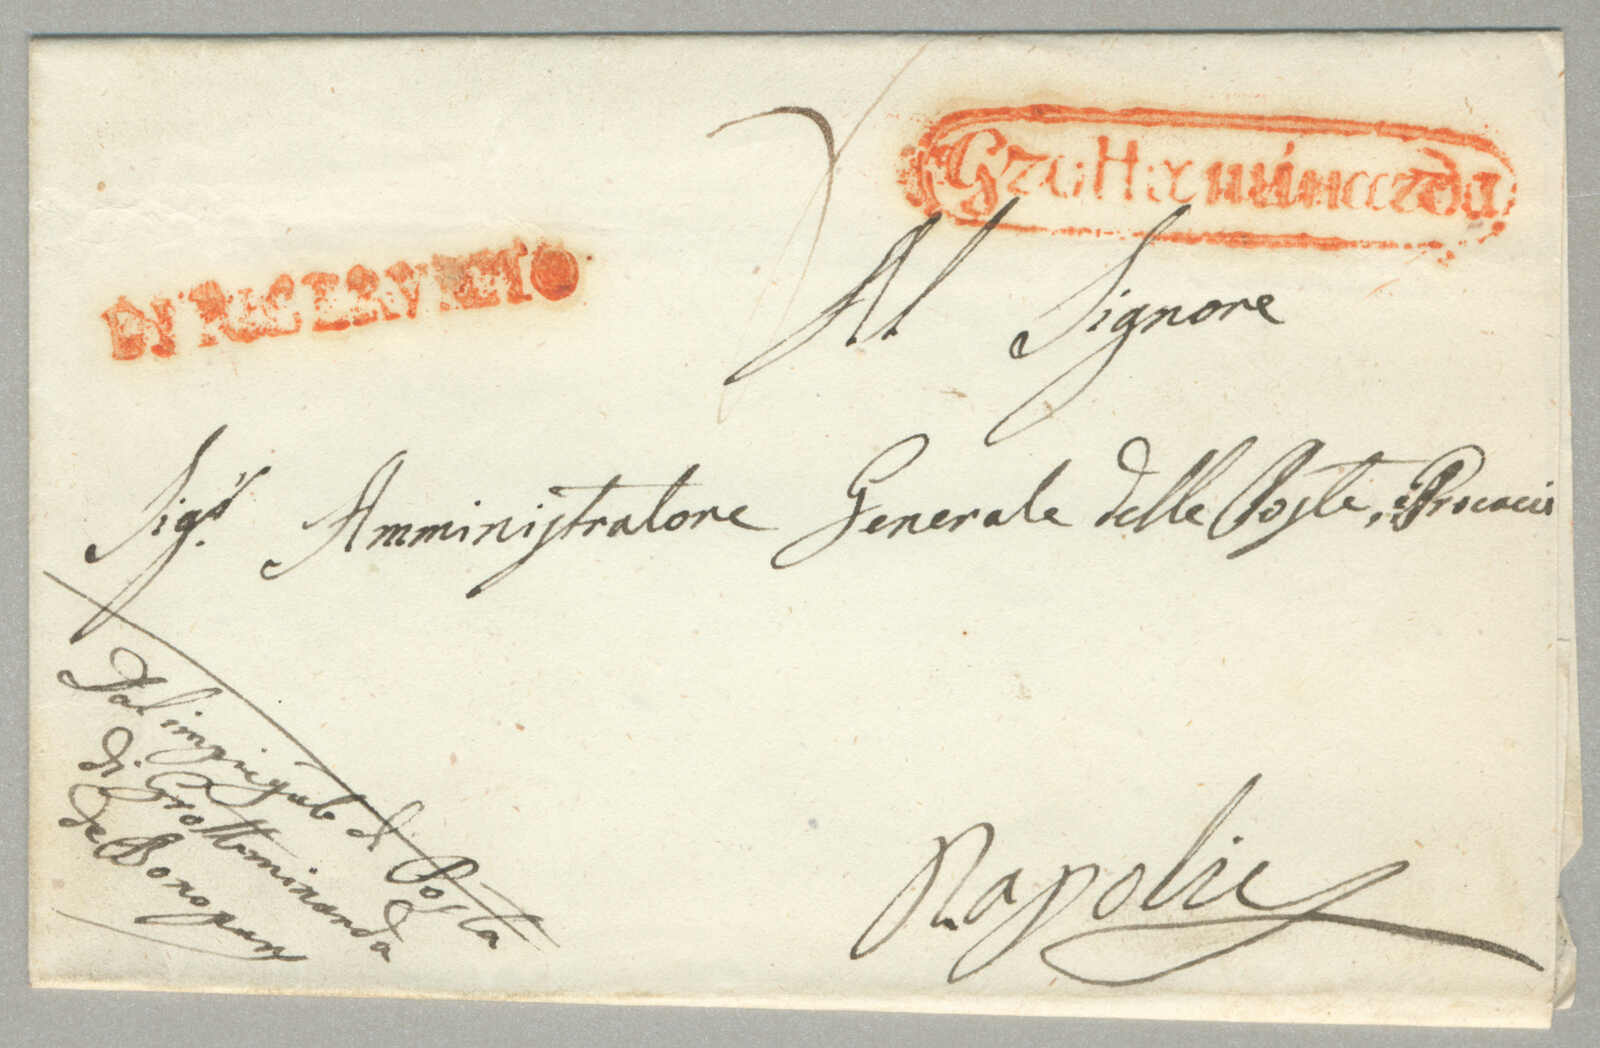 Grottaminarda
DI RISERVATO
Al Signore
Sig.r Amministratore Generale delle Poste, e Procacci
Napoli
Dal impiegato di Posta
di Grottaminarda
de